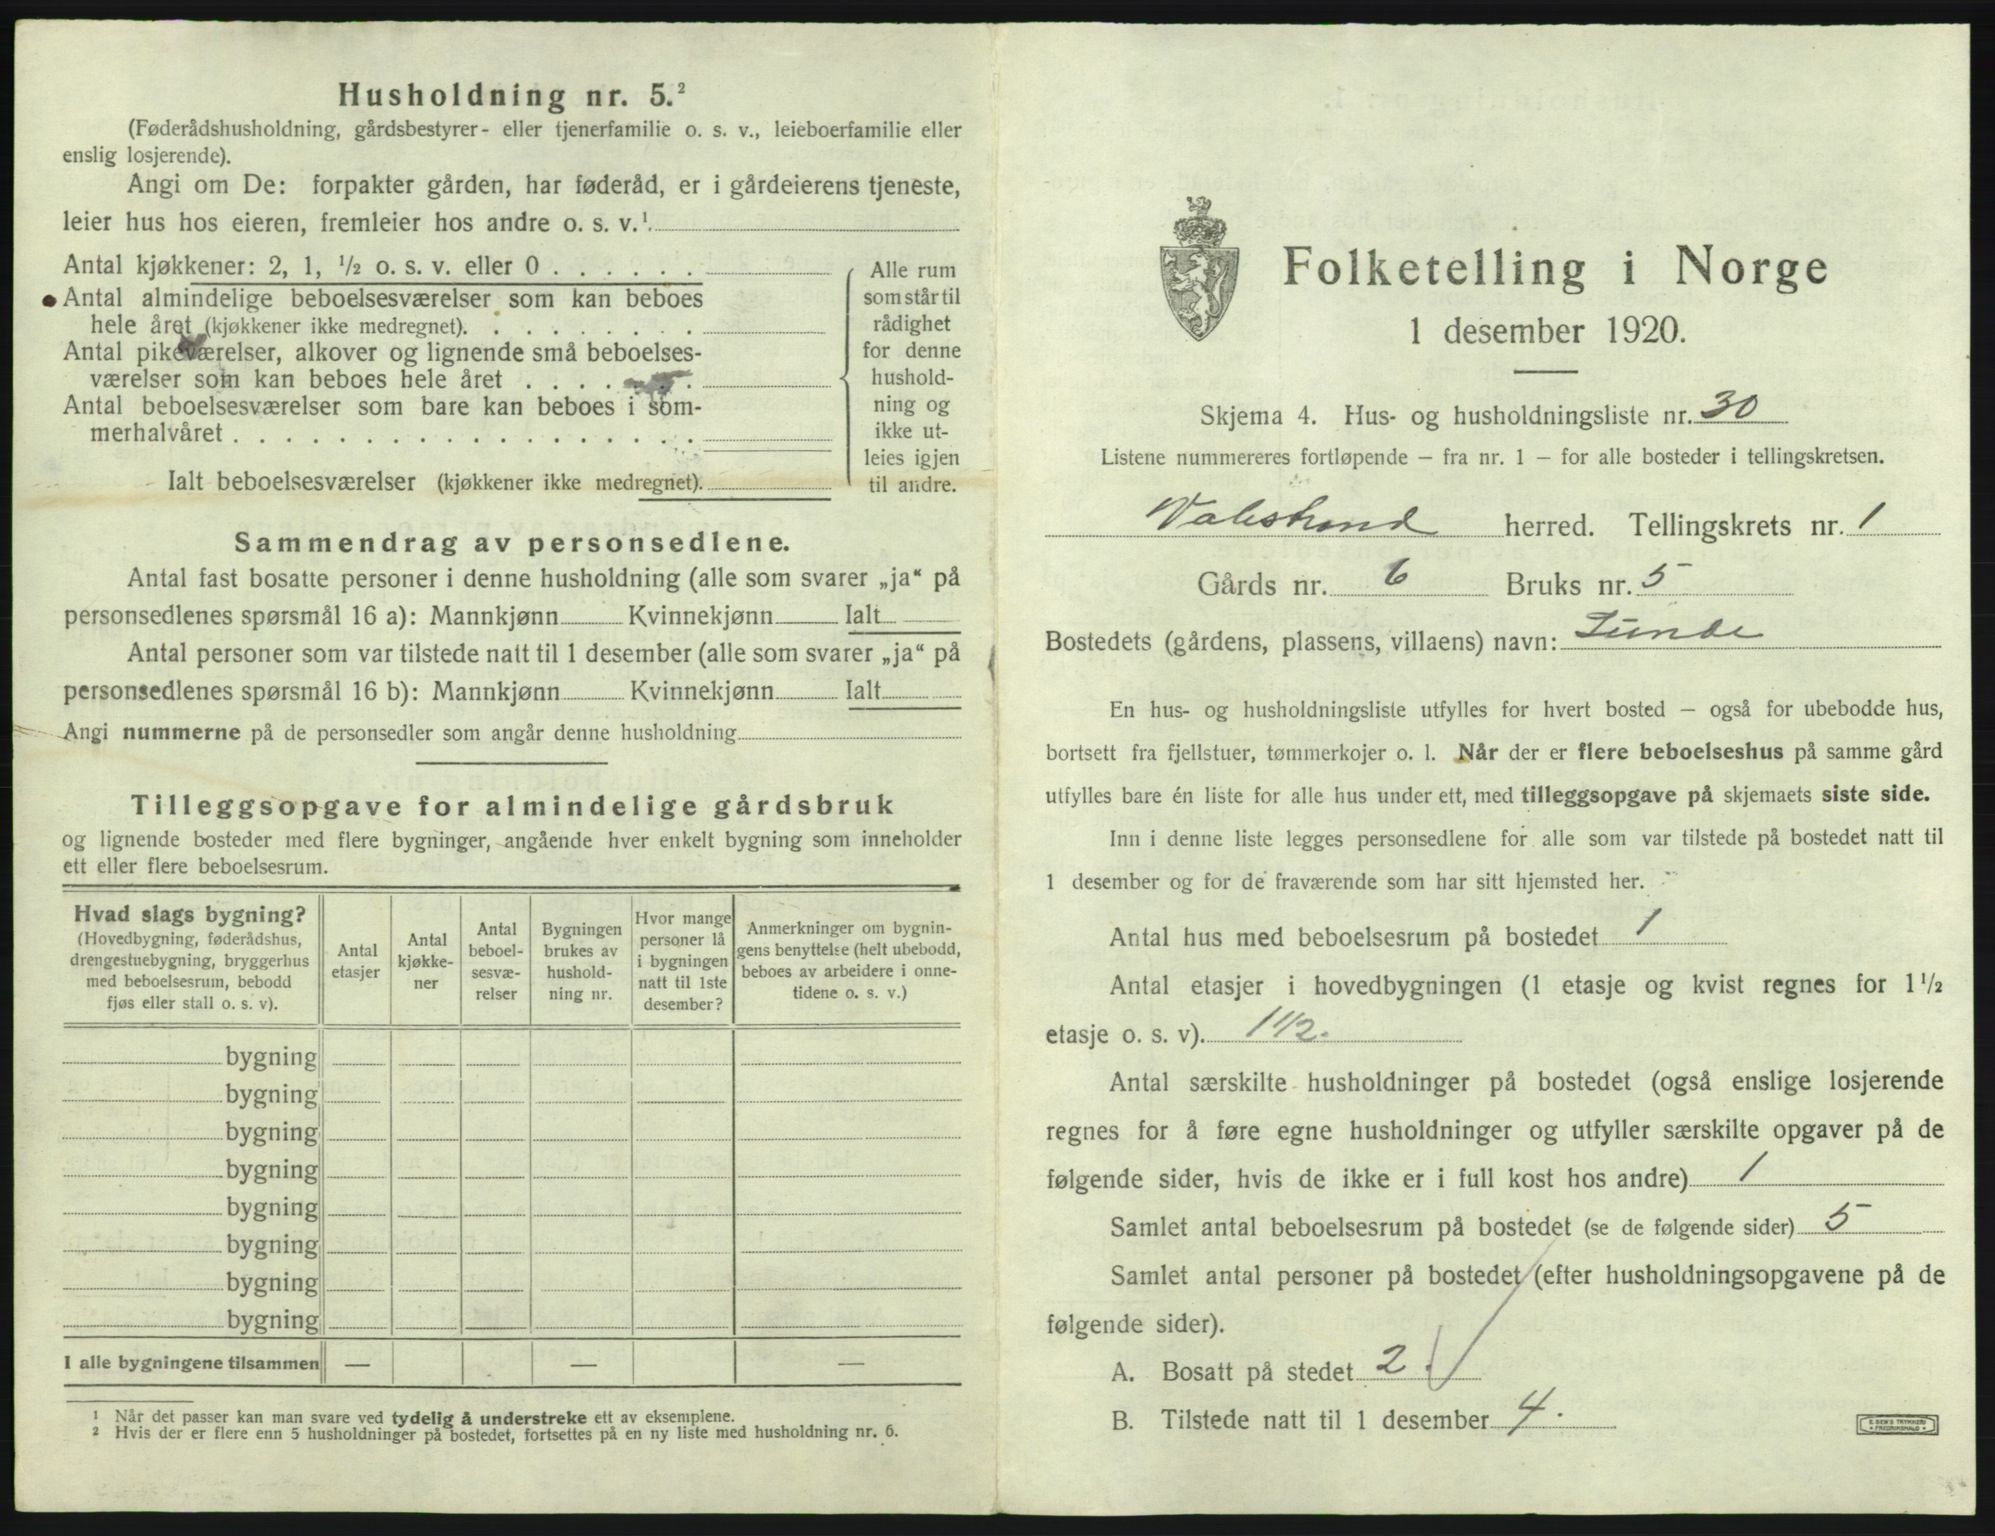 Husholdning nr. 5.²
(Føderådshusholdning, gårdsbestyrer- eller tjenerfamilie o. s. v., leieboerfamilie eller
enslig losjerende).
Angi om De: forpakter gården, har føderåd, er i gårdeierens tjeneste,
leier hus hos eieren, fremleier hos andre o. s. v.¹
Antal kjøkkener: 2, 1, ½ o. s. v. eller 0 . . . . . .
Antal almindelige beboelsesværelser som kan beboes
hele året (kjøkkener ikke medregnet). . . . . . . . .
Antal pikeværelser, alkover og lignende små beboelses-
værelser som kan beboes hele året . . . . . . .
Antal beboelsesværelser som bare kan beboes i som-
merhalvåret . . . . . . . . . . . . . . . . . .
Ialt beboelsesværelser (kjøkkener ikke medregnet).
Alle rum
som står til
rådighet
for denne
hushold-
ning og
ikke ut-
leies igjen
til andre.
Sammendrag av personsedlene.
Antal fast bosatte personer i denne husholdning (alle som svarer „ja“ på
personsedlenes spørsmål 16 a): Mannkjønn Kvinnekjønn Ialt
Antal personer som var tilstede natt til 1 desember (alle som svarer „ja“ på
personsedlenes spørsmål 16 b): Mannkjønn Kvinnekjønn Ialt
Angi nummerne på de personsedler som angår denne husholdning
Tilleggsopgave for almindelige gårdsbruk
og lignende bosteder med flere bygninger, angående hver enkelt bygning som inneholder
ett eller flere beboelsesrum.
Hvad slags bygning?
(Hovedbygning, føderådshus,
drengestuebygning, bryggerhus
med beboelsesrum, bebodd
fjøs eller stall o. s. v).
Antal
etasjer
Antal
kjøkke-
ner
Antal
beboel-
sesvæ-
relser
Bygningen
brukes av
hushold-
ning nr.
Hvor mange
personer lå
i bygningen
natt til 1ste
desember?
Anmerkninger om bygnin-
gens benyttelse (helt ubebodd,
beboes av arbeidere i onne-
tidene o. s. v.)
bygning
bygning
bygning
bygning
bygning
bygning
bygning
bygning
I alle bygningene tilsammen — — —
¹ Når det passer kan man svare ved tydelig å understreke ett av eksemplene.
² Hvis der er flere enn 5 husholdninger på bostedet, fortsettes på en ny liste med husholdning nr. 6.
Folketelling i Norge
1 desember 1920.
Skjema 4. Hus- og husholdningsliste nr. 30
Listene nummereres fortløpende — fra nr. 1 — for alle bosteder i tellingskretsen.
Valestrand herred. Tellingskrets nr. 1
Gårds nr. 6 Bruks nr. 5
Bostedets (gårdens, plassens, villaens) navn: Lunde
En hus- og husholdningsliste utfylles for hvert bosted — også for ubebodde hus,
bortsett fra fjellstuer, tømmerkojer o. l. Når der er flere beboelseshus på samme gård
utfylles bare én liste for alle hus under ett, med tilleggsopgave på skjemaets siste side.
Inn i denne liste legges personsedlene for alle som var tilstede på bostedet natt til
1 desember og for de fraværende som har sitt hjemsted her.
Antal hus med beboelsesrum på bostedet 1
Antal etasjer i hovedbygningen (1 etasje og kvist regnes for 1½
etasje o. s. v). 1 1/2.
Antal særskilte husholdninger på bostedet (også enslige losjerende
regnes for å føre egne husholdninger og utfyller særskilte opgaver på de
følgende sider, hvis de ikke er i full kost hos andre) 1
Samlet antal beboelsesrum på bostedet (se de følgende sider) 5
Samlet antal personer på bostedet (efter husholdningsopgavene på de
følgende sider).
A. Bosatt på stedet 2.
B. Tilstede natt til 1 desember 4.
E. SEM'S TRYKKERI
FREDRIKSHALD